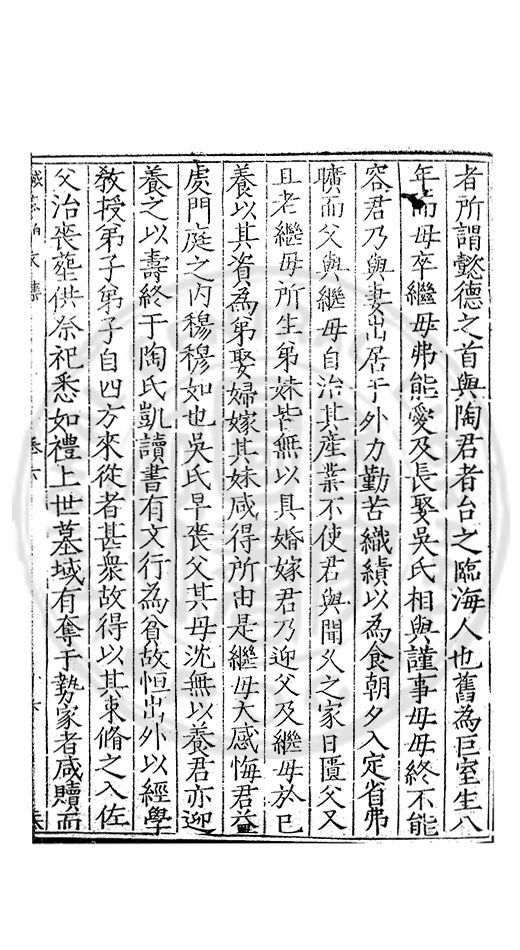 者所謂懿德之首與陶君者台之臨海人也舊為巨室生八
年而母卒繼母弗能愛及長娶吳氏相與謹事母母終不能
容君乃與妻出居于外力勤苦織績以為食朝夕入定省弗
曠而父與繼母自治其產業不使君與聞久之家日匱父又
且老繼母所生弟妹皆無以具婚嫁君乃迎父及繼母於己
養以其資為弟娶婦嫁其妹咸得所由是繼母大感悔君益
處門庭之內穆穆如也吳氏早喪父其母沈無以養君亦迎
養之以壽終于陶氏凱讀書有文行為貧故恒出外以經學
敎授弟子弟子自四方來從者甚衆故得以其束脩之入佐
父治喪塟供祭祀悉如禮上世墓域有奪于勢家者咸贖而
文集 卷六